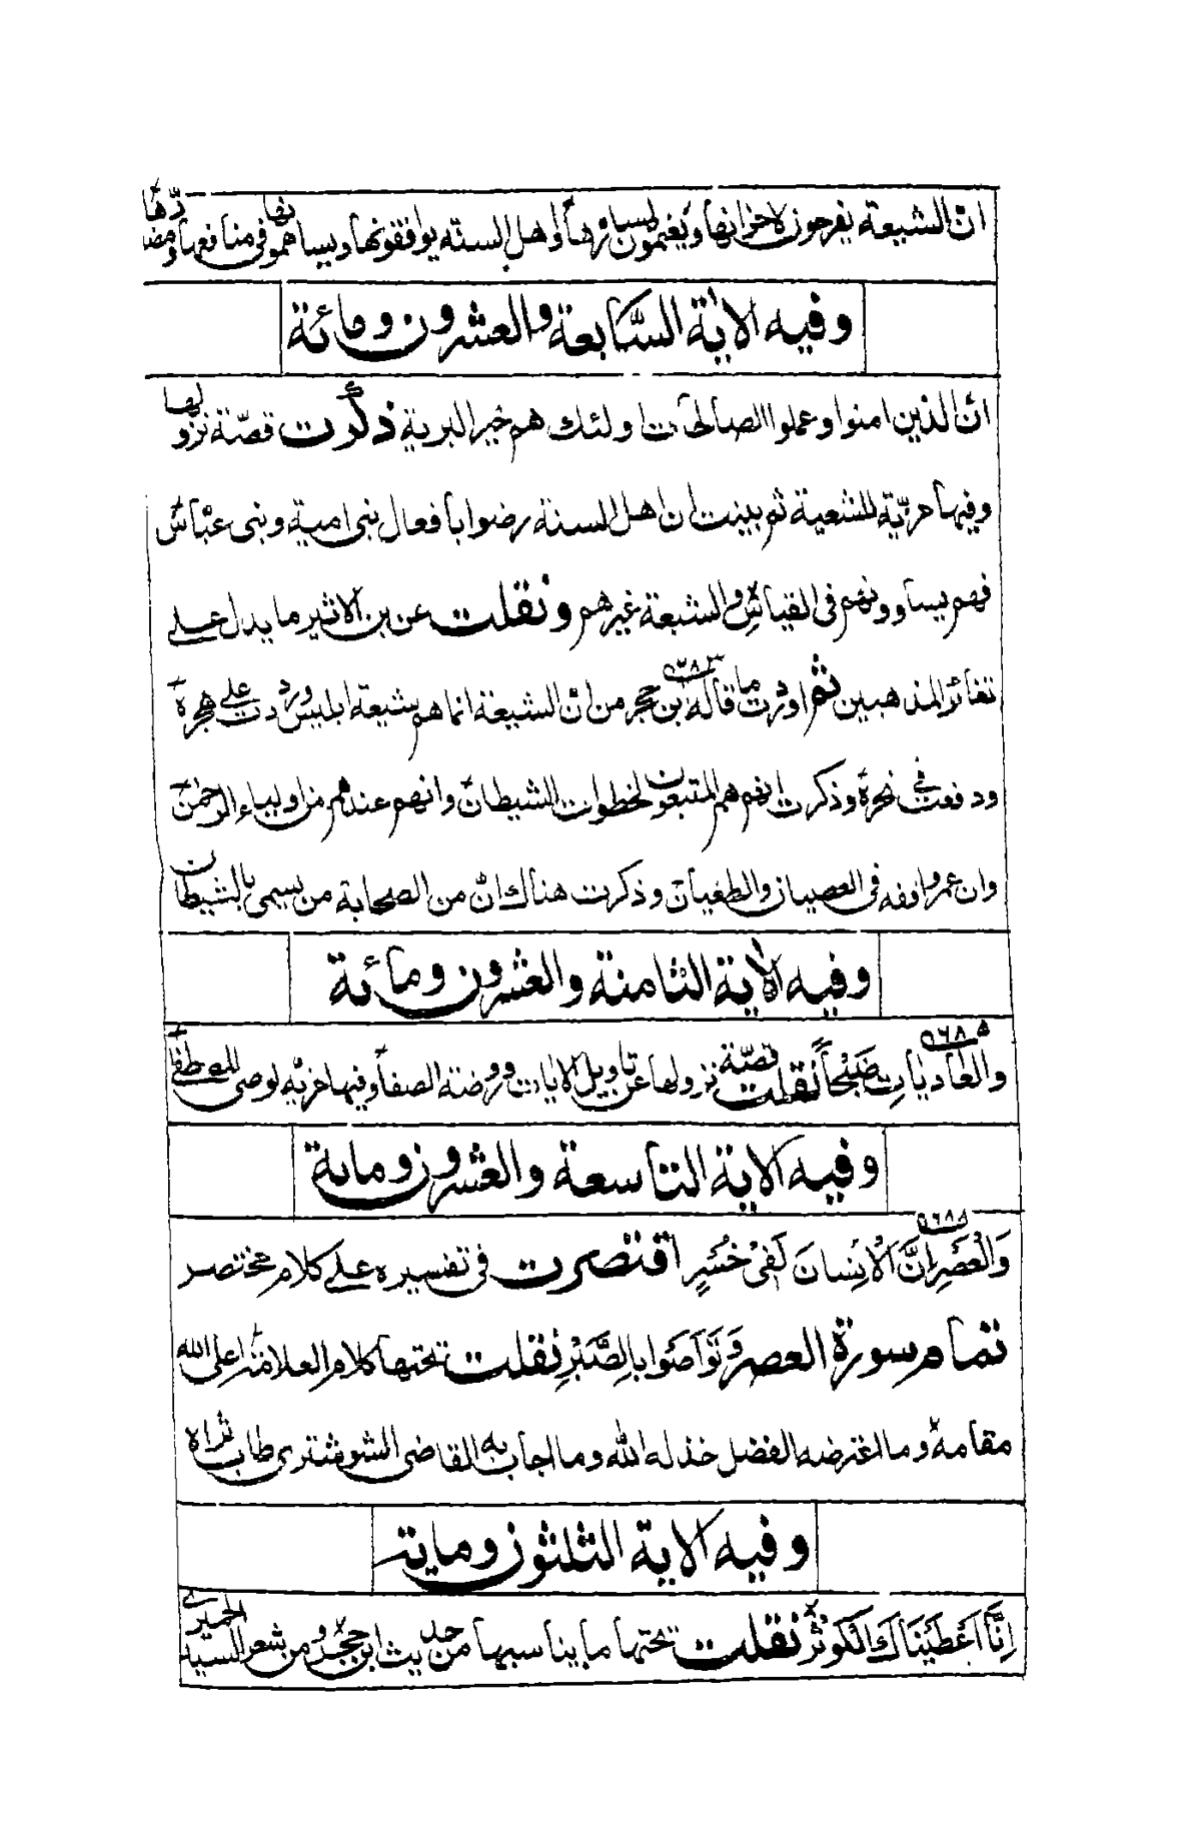 ان الشيعة يفرحون لاحزانها ويغتمون لمسارها واهل السنة يوافقونها ويساهموها في منافعها ومضارها
وفيه الاية السابعة والعشرون ومائة
ان الذين امنوا وعملوا الصالحات اولئك هم خير البرية ذكرت قصة نزولها
وفيها مزية للشيعة ثم بينت ان اهل السنة رضوا بافعال بنى امية وبنى عباس
فهم يساوونهم فى القياس والشيعة غيرهم ونقلت عن بن الاثير ما يدل على
تغائر المذهبين ثم اوردت ما قاله بن حجر من ان الشيعة انما هم شيعة ابليس ورددت على هجره
ودفعت فى نحره وذكرت انهم هم المتبعون لخطوات الشيطان وانهم عندهم من اولياء الرحمن
وان عمر وافقه فى العصيان والطغيان وذكرت هناك ان من الصحابة من يسمى بالشيطان
وفيه الاية الثامنة والعشرون ومائة
٥٦٨٥
والعاديات ضبحاً نقلت قصة نزولها عن تاويل الايات وروضة الصفا وفيها مزية لوصى المصطفى
وفيه الاية التاسعة والعشرون وماية
٥٦٨٨
وَالْعَصْرِ اِنَّ الْاِنْسَانَ لَفِىْ خُسْرٍ اقتصرت فى تفسيره على كلام مختصر
تمام سورة العصر وَتَوَاصَوْا بِالصَّبْرِ نقلت تحتها كلام العلامة اعلى الله
مقامه وما اعترضه الفضل خذله الله وما اجاب به القاضى الشوشترى طاب ثراه
وفيه الاية الثلثون وماية
اِنَّا اَعْطَيْنَاكَ الْكَوْثَرَ نقلت تحتها ما يناسبها من حديث ابن حجر ومن شعر السيد الحميرى